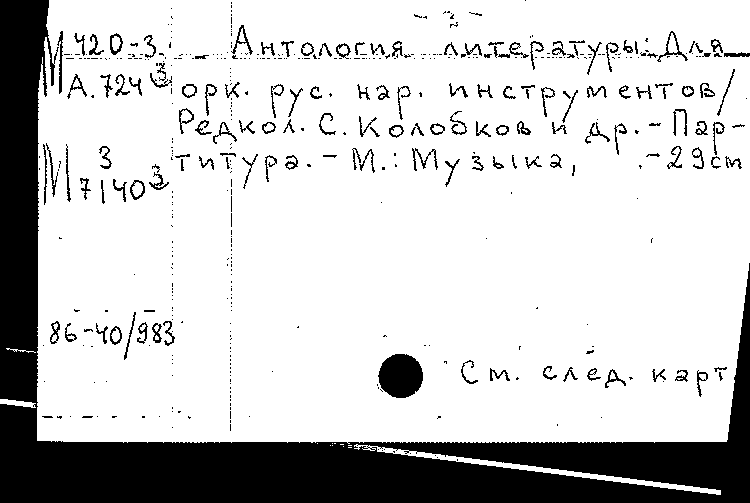 - 2 -
М 420-3 Антология литературы: Для
А.724 3 орк. рус. нар. инструментов/
Редкол. С. Колобков и др. - Пар-
М 3 титура. - М.: Музыка, - 29 см
7140 3
86-40/983
См. след. карт